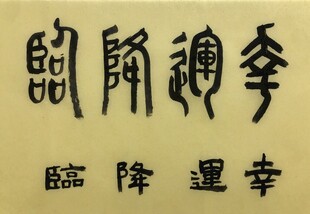 幸運降臨
幸運降臨